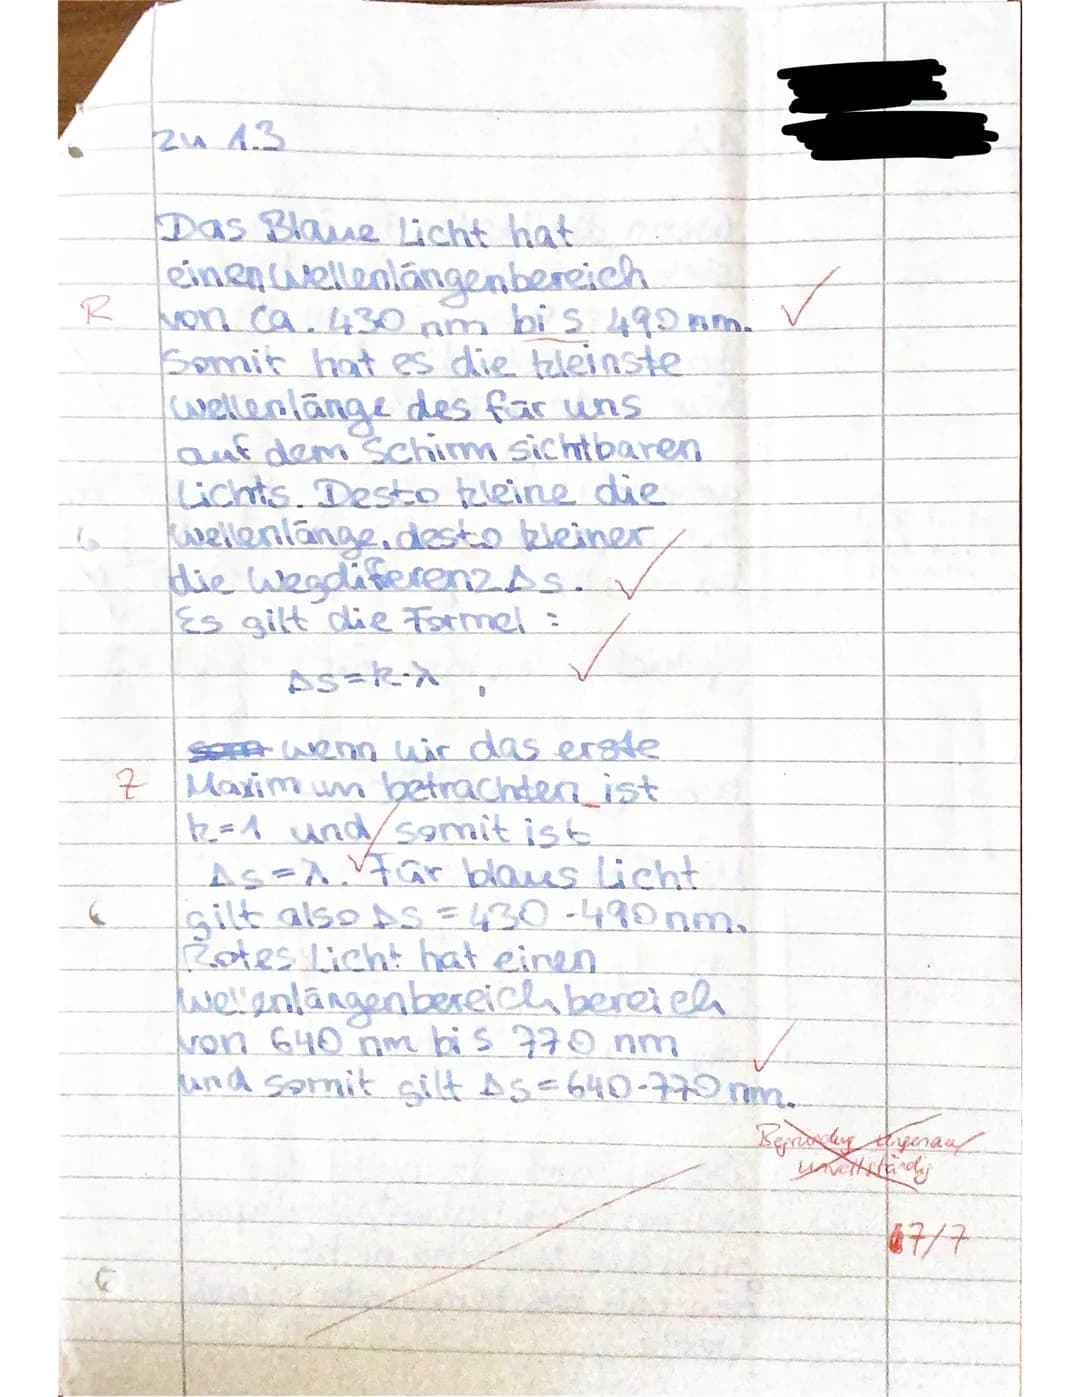 zu 1.3
Das Blaue Licht hat
einen Wellenlängenbereich
R von ca. 430 nm bis 490 nm.
Somit hat es die kleinste
Wellenlänge des für uns
auf dem Schirm sichtbaren
Lichts. Desto kleine die
Wellenlänge, desto kleiner
die Wegdiferenz Δs.
Es gilt die Formel :
Δs=k·λ ,
wenn wir das erste
Z Maximum betrachten ist
k=1 und somit ist
Δs=λ. Für blaus Licht
gilt also Δs = 430 -490 nm.
Rotes Licht hat einen
Wellenlängenbereich bereich
von 640 nm bis 770 nm
und somit gilt Δs=640-770 nm.
Begründung ungenau/
unvollständig
7/7